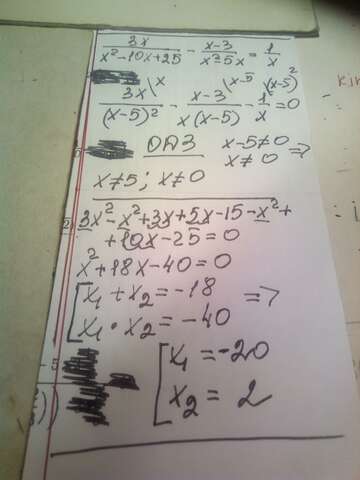 3x/(x²-10x+25) - (x-3)/(x²-5x) = 1/x
3x\x/(x-5)² - x-3\x-5/(x(x-5)) - 1\(x-5)²/x = 0
ОДЗ x-5≠0 =>
x≠0
x≠5; x≠0
3x²-x²+3x+5x-15-x²+
+10x-25=0
x²+18x-40=0
[x₁+x₂=-18 =>
x₁·x₂=-40
[x₁=-20
x₂=2